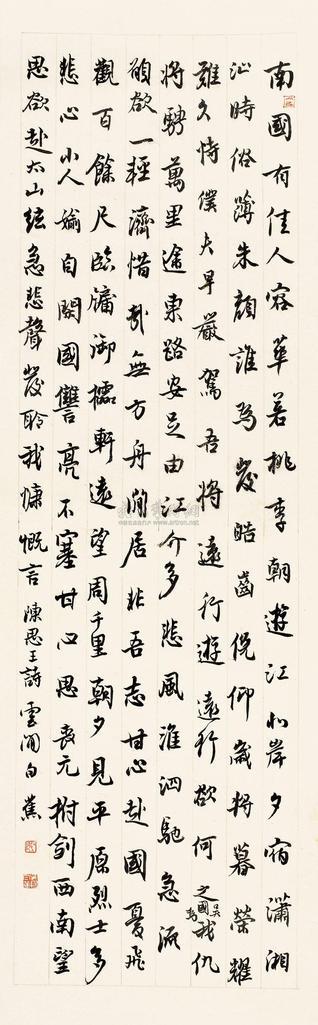 南國有佳人容華若桃李朝遊江北岸夕宿瀟湘
沚時俗薄朱顏誰為發皓齒俛仰歲將暮榮耀
難久恃僕夫早嚴駕吾將遠行遊遠行欲何之吳國為我仇
將騁萬里途東路安足由江介多悲風淮泗馳急流
願欲一輕濟惜哉無方舟閒居非吾志甘心赴國憂飛
觀百餘尺臨牖御櫺軒遠望周千里朝夕見平原烈士多
悲心小人媮自閒國讐亮不塞甘心思喪元拊劍西南望
思欲赴太山弦急悲聲發聆我慷慨言 陳思王詩 雲間白蕉